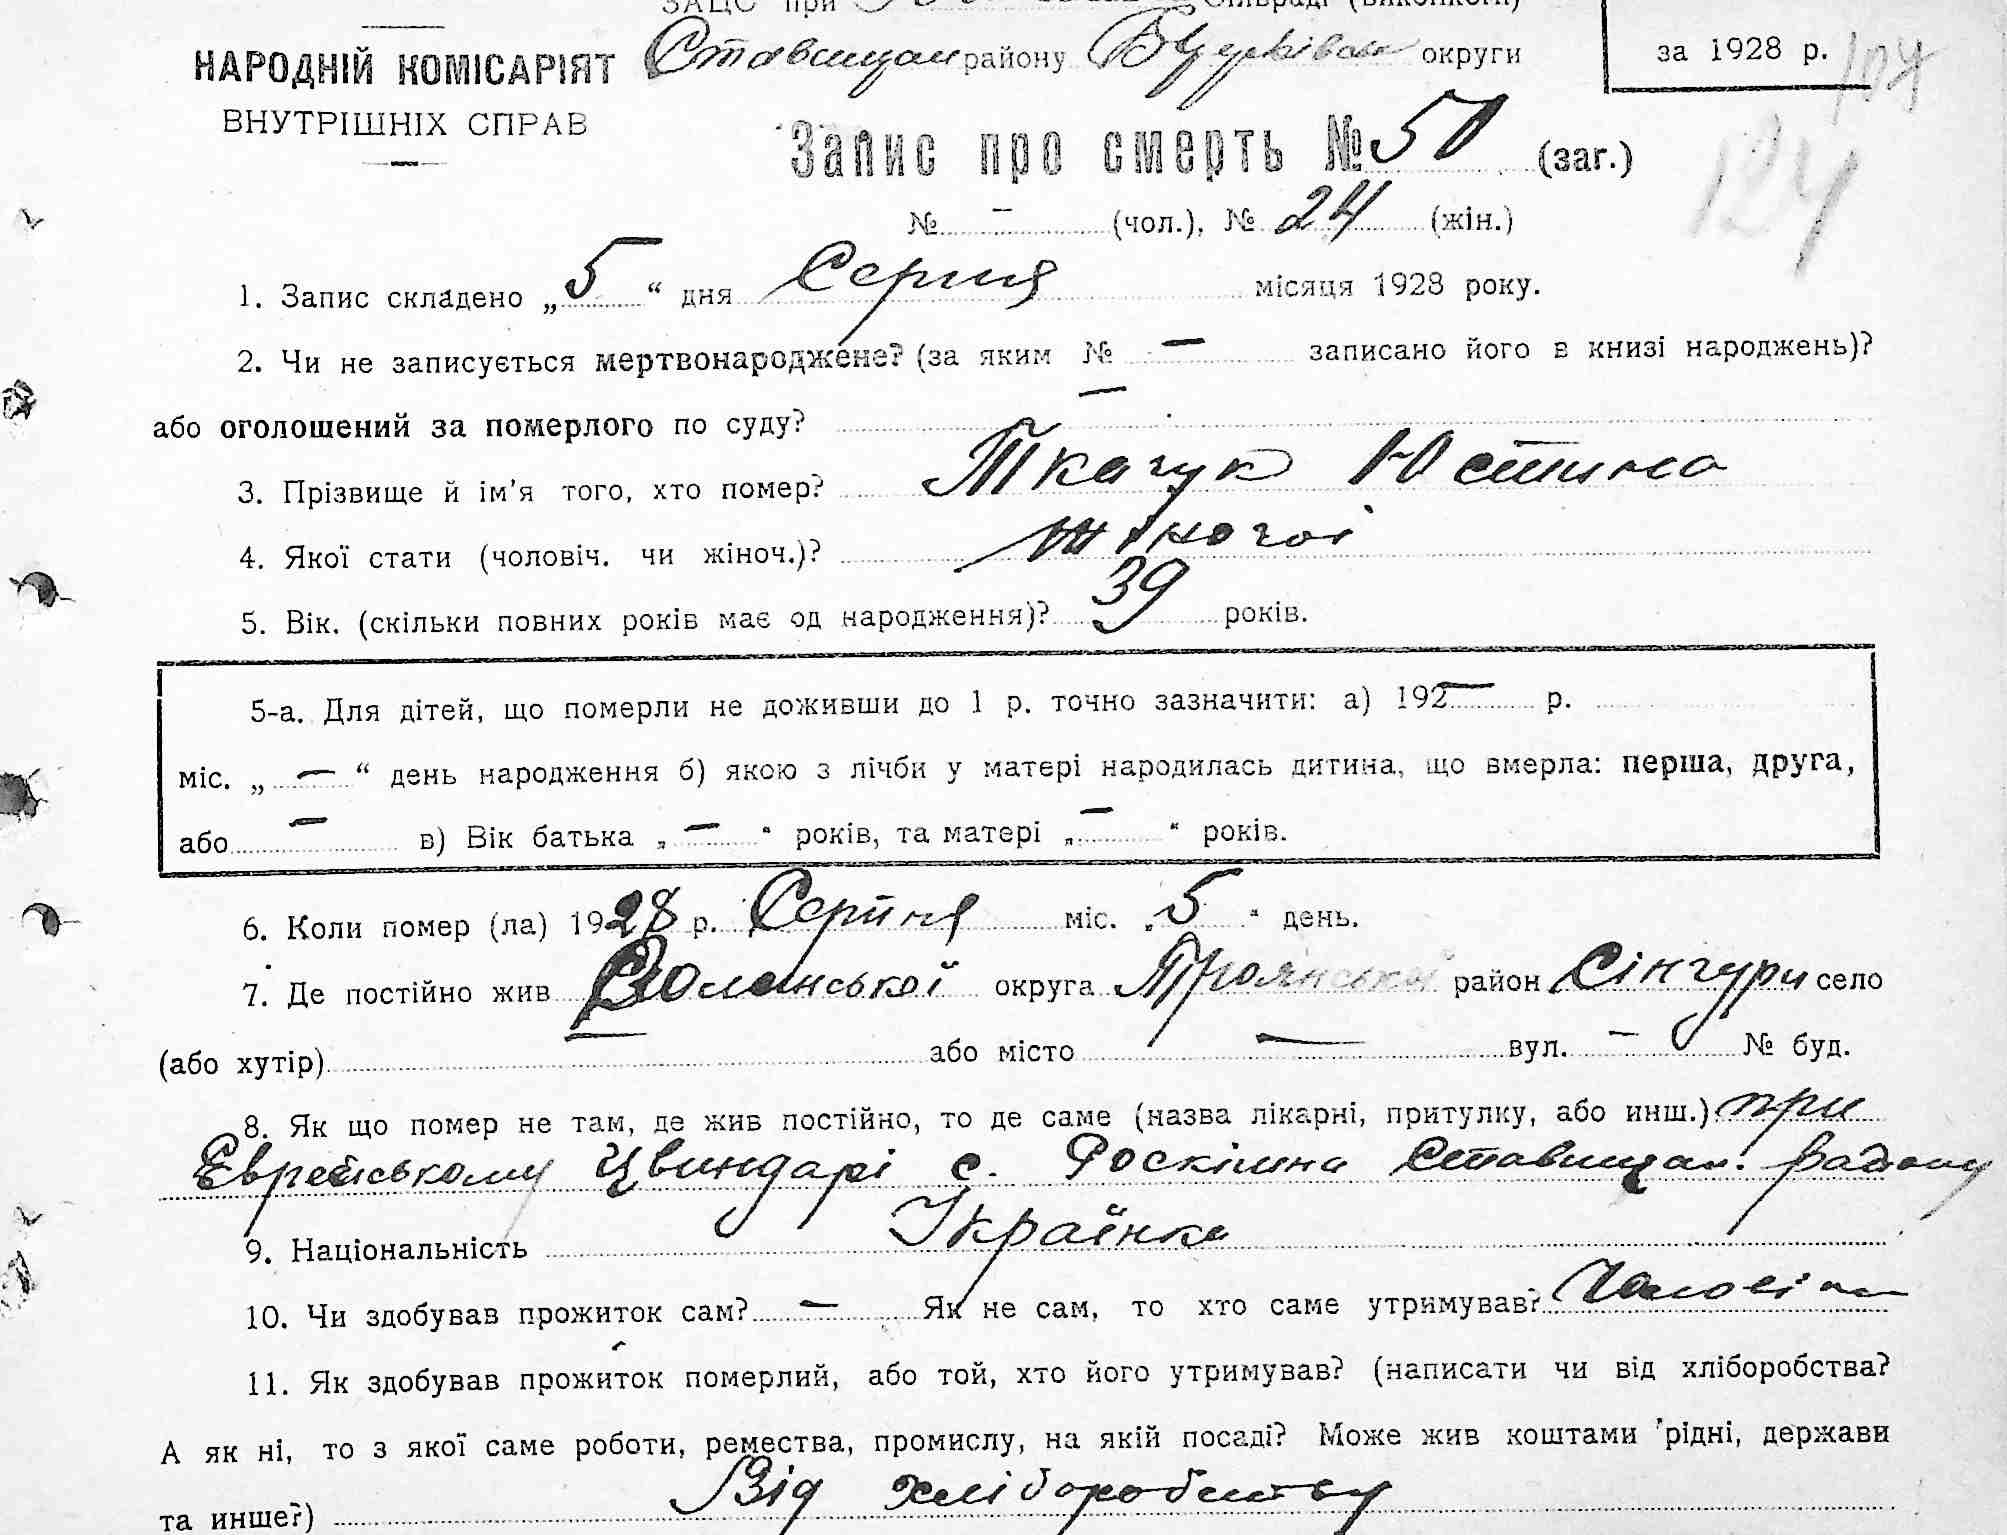 ЗАЦС при сільраді (виконкомі)
НАРОДНІЙ КОМІСАРІЯТ Ставищан району БЦерківськ округи за 1928 р. 107
ВНУТРІШНІХ СПРАВ
Запис про смерть № 50 (заг.) 124
№ – (чол.), № 24 (жін.)
1. Запис складено „5“ дня Серпня місяця 1928 року.
2. Чи не записується мертвонароджене? (за яким № – записано його в книзі народжень)?
або оголошений за померлого по суду? –
3. Прізвище й ім'я того, хто помер? Ткачук Юстина
4. Якої стати (чоловіч. чи жіноч.)? жіночої
5. Вік. (скільки повних років має од народження)? 39 років.
5-а. Для дітей, що померли не доживши до 1 р. точно зазначити: а) 192– р.
міс. „–“ день народження б) якою з лічби у матері народилась дитина, що вмерла: перша, друга,
або – в) Вік батька „–“ років, та матері „–“ років.
6. Коли помер (ла) 1928 р. Серпня міс. „5“ день.
7. Де постійно жив Воленської округа Троянської район Сінгури село
(або хутір) – або місто – вул. – № буд.
8. Як що помер не там, де жив постійно, то де саме (назва лікарні, притулку, або инш.) при
Еврейському Цвиндарі с. Роскішна Ставищан. району
9. Національність Українка
10. Чи здобував прожиток сам? – Як не сам, то хто саме утримував? Чоловік
11. Як здобував прожиток померлий, або той, хто його утримував? (написати чи від хліборобства?
А як ні, то з якої саме роботи, ремества, промислу, на якій посаді? Може жив коштами рідні, держави
та инше?) Від хліборобству